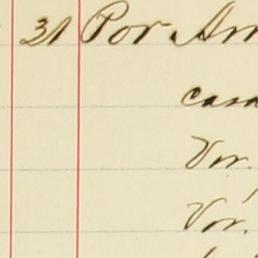 31 Por Arr
casa
Vor.
Vor.